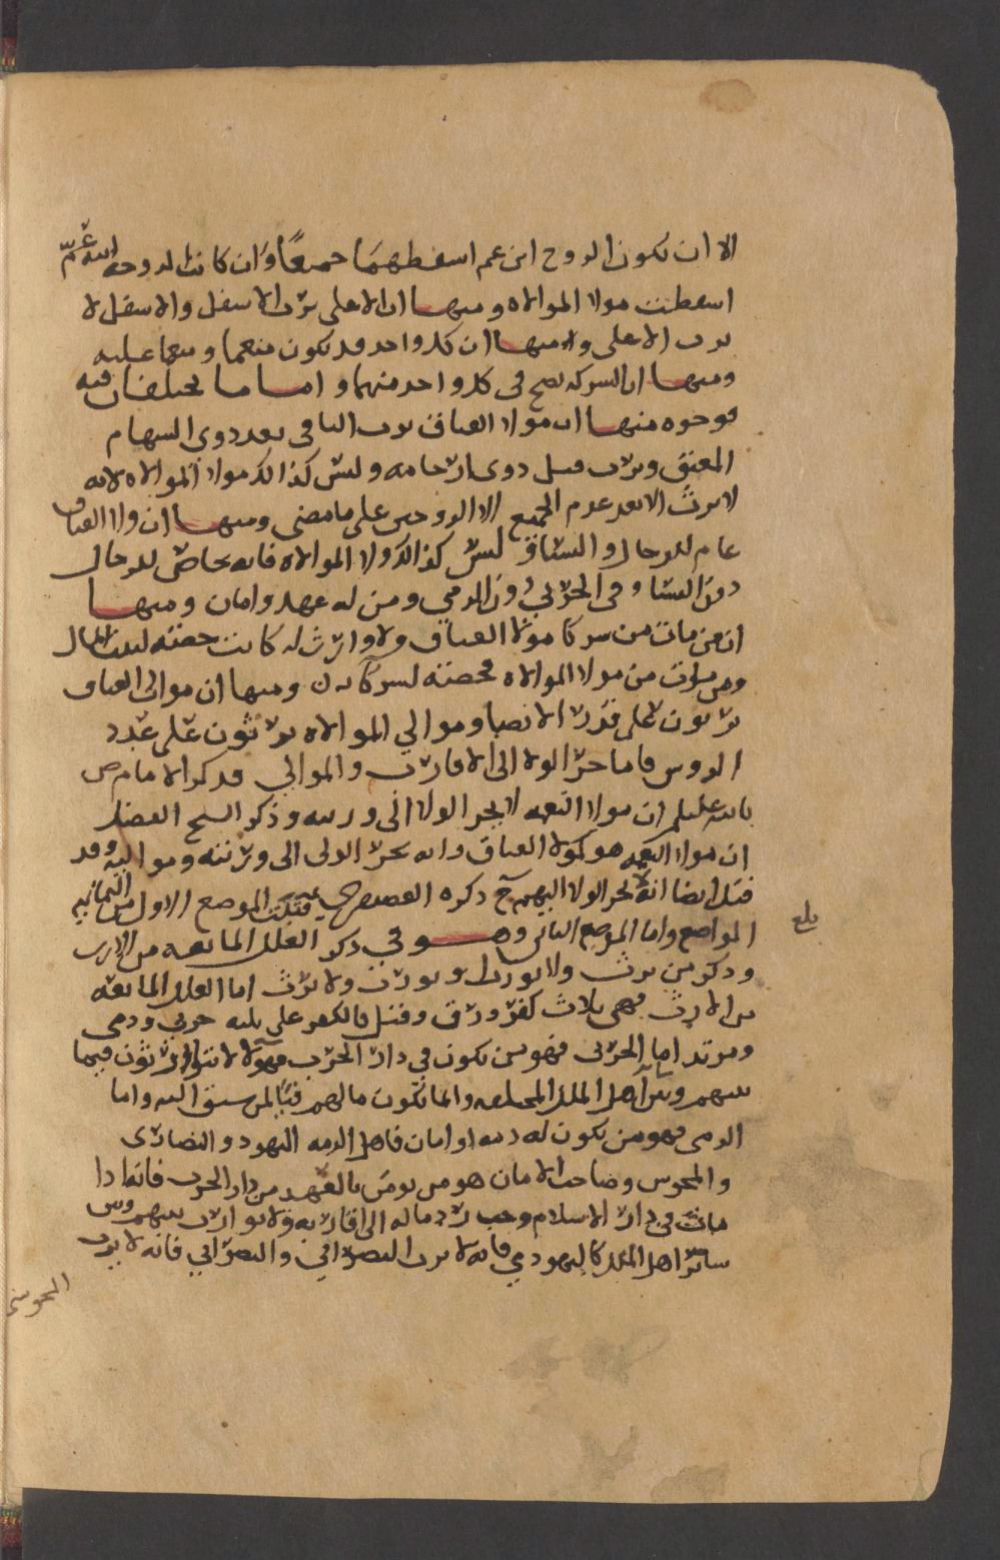 الا ان يكون الزوج ابن عم اسقطهما جميعًا وان كانت الزوجه ابنة عم
اسقطت مولا الموالاه ومنها ان الاعلى يرث الاسفل والاسفل لا
يرث الاعلى ومنها ان كل واحد قد يكون منعما ومنعما عليه
ومنها ان الشركه تصح في كل واحد منهما واما ما يختلفان فيه
فوجوه منها ان مولا العتاق يرث الباقي بعد ذوي السهام
المعتق ويرث قبل ذوي ارحامه وليس كذلك مولا الموالاه لانه
لا يرث الا بعد عدم الجميع الا الزوجين على ما مضى ومنها ان ولا العتاق
عام للرجال والنساء وليس كذلك ولا الموالاه فانه خاص للرجال
دون النساء وفي الحربي دون الذمي ومن له عهد وامان ومنها
ان من مات من شركا مولا العتاق ولا وارث له كانت حصته لبيت المال
ومن مات من مولا الموالاه فحصته لشركائه ومنها ان موالي العتاق
يرثون على قدر الانصبا وموالي الموالاه يرثون على عدد
الروس فاما جر الولا الى الاقارب والموالي فذكر الامام ص
بالله عليلم ان مولا النعمه لا يجر الولا الى ورثته وذكر الشيخ الفضل
ان مولا النعمه هو كمولا العتاق وانه يجر الولى الى ورثته ومواليه وقد
قيل ايضا انه لا يجر الولا اليهم ذكره العصيفري فثبت الموضع الاول من الثمانيه
المواضع واما الموضع الثاني وهو في ذكر العلل المانعه من الارث
وذكر من يرث ولا يورث ويورث ولا يرث اما العلل المانعه
من الارث فهي ثلاث كفر ورق وقتل فالكفر على ثلثه حربي وذمي
ومرتد اما الحربي فهو من يكون في دار الحرب فهؤلا لا يتوارثون فيما
بينهم وبين اهل الملل المختلفه وانما تكون مالهم فيًا لمن سبق اليه واما
الذمي فهو من يكون له ذمه او امان فاهل الذمه اليهود والنصارى
والمجوس وصاحب الامان هو من يومن بالعهد من دار الحرب فانه اذا
مات في دار الاسلام وجب رد ماله الى اقاربه ولا توارث بينهم وبين
سائر اهل الملل كاليهودي فانه لا يرث النصراني والنصراني فانه لا يرث
المجوسي
بلغ